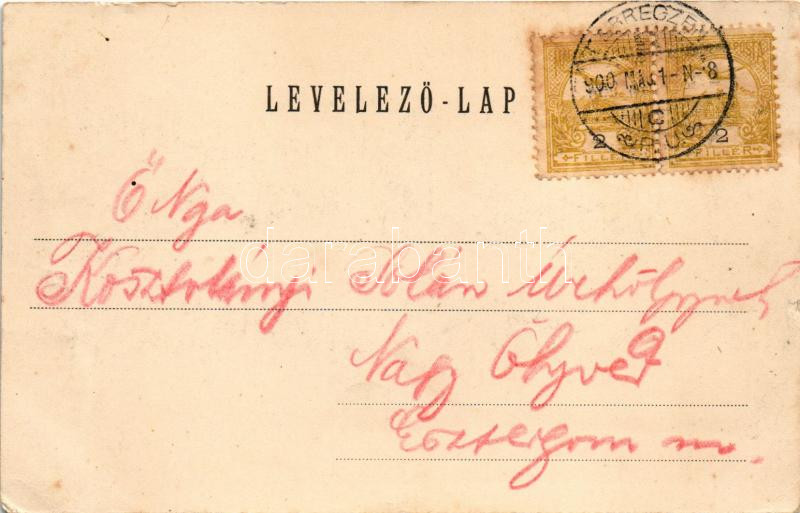 LEVELEZŐ-LAP
DEBRECZEN
900 MÁJ 31-N-8
C
2 FILLER
2 FILLER
Ő Nga
Kosztolányi Jolán Úrhölgynek
Nagy Ölyved
Esztergom m.
darabanth